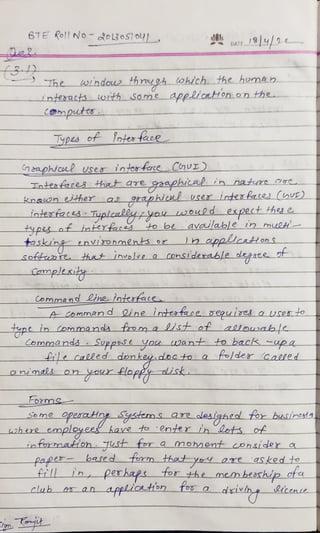 BTE Roll No - 2013051041
DATE 18/4/2
Que 2.
(3.1)
The window through which the human
interacts with some application on the
computer.
Types of Interface
Graphical user interface (GUI)
Interfaces that are graphical in nature are
known either as graphical user interfaces (GUI)
interfaces. Typically, you would expect these
types of interfaces to be available in multi-
tasking environments or in applications
software that involve a considerable degree of
Complexity
Command line interface
A command line interface requires a user to
type in commands from a list of allowable
commands. Suppose you want to back-up a
file called donkey.doc to a folder called
animals on your floppy disk.
Forms
Some operating systems are designed for business
where employees have to enter in lots of
information. Just for a moment consider a
paper-based form that you are asked to
fill in, perhaps for the membership of a
club or an application for a driving licence